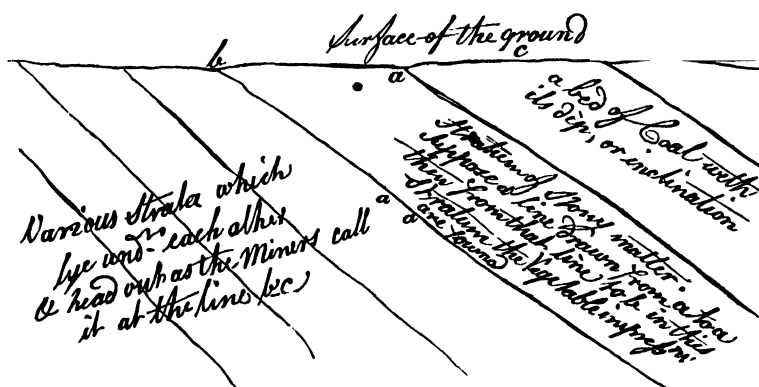 Surface of the ground
b
a
c
a bed of Coal with
its dip, or inclination
Stratum of Stony matter.
Suppose a line drawn from a to a
then from that line to be in this
Stratum the Vegetable impressns.
are found
a
a
Various Strata which
lye undr. each other
& head out as the Miners call
it at the line b c